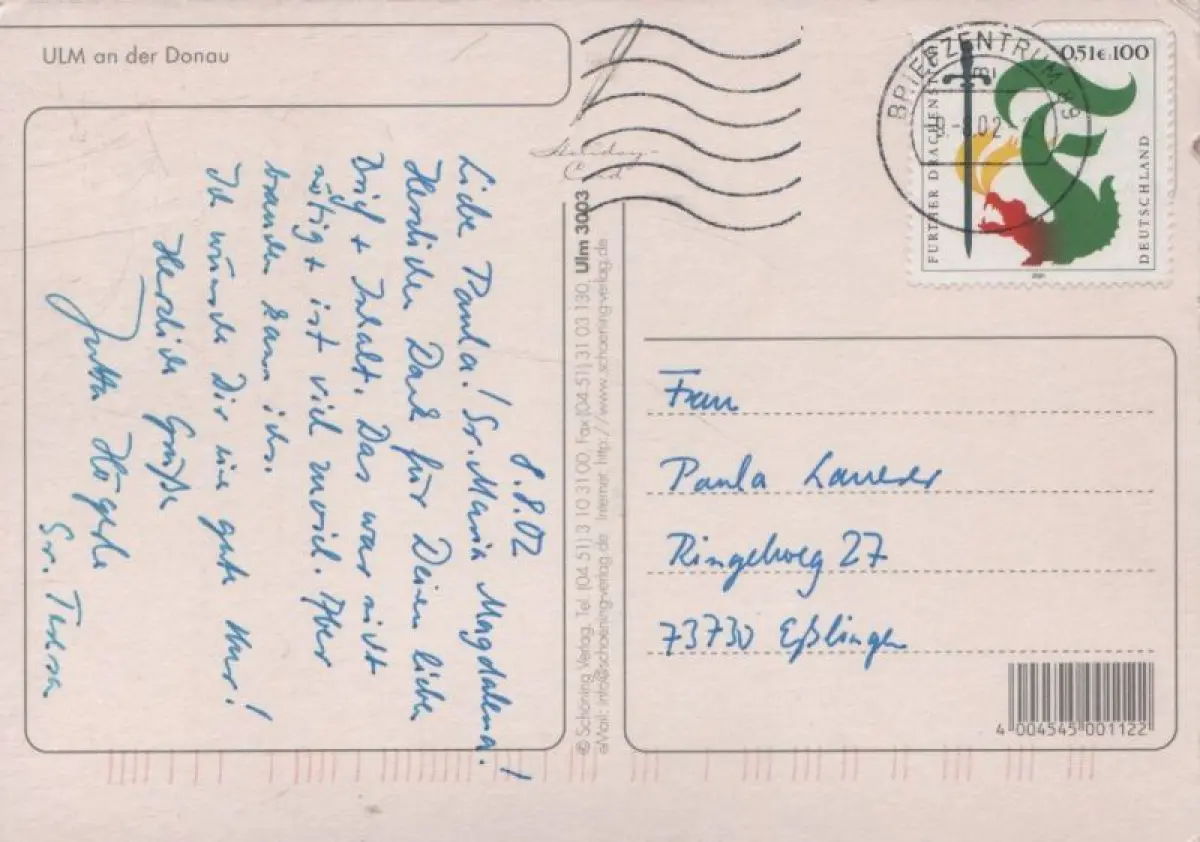 ULM an der Donau
8.8.02
Liebe Paula! Sr. Maria Magdalena!
Herzlichen Dank für Deinen lieben
Brief + Inhalt. Das war nicht
nötig + ist viel zuviel. Aber
brauchen kann ichs.
Ich wünsche Dir eine gute Kur!
Herzliche Grüße
Jutta
Sr. Teresa
Holiday-
Card
© Schöning Verlag, Tel. (04 51) 3 10 31 00, Fax (04 51) 31 03 130, Ulm 3003
eMail: info@schoening-verlag.de Internet: http://www.schoening-verlag.de
BRIEFZENTRUM 89
02
0,51€ 100
FURTHER DRACHENSTICH
DEUTSCHLAND
2001
Frau
Paula
Ringelweg 27
73730 Eßlingen
4 004545 001122